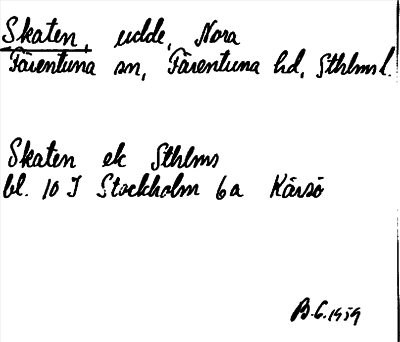 Skaten, udde, Nora
Färentuna sn, Färentuna hd, Sthlms l.
Skaten ek Sthlms
bl. 10 I Stockholm 6a Kärsö
B.G. 1959